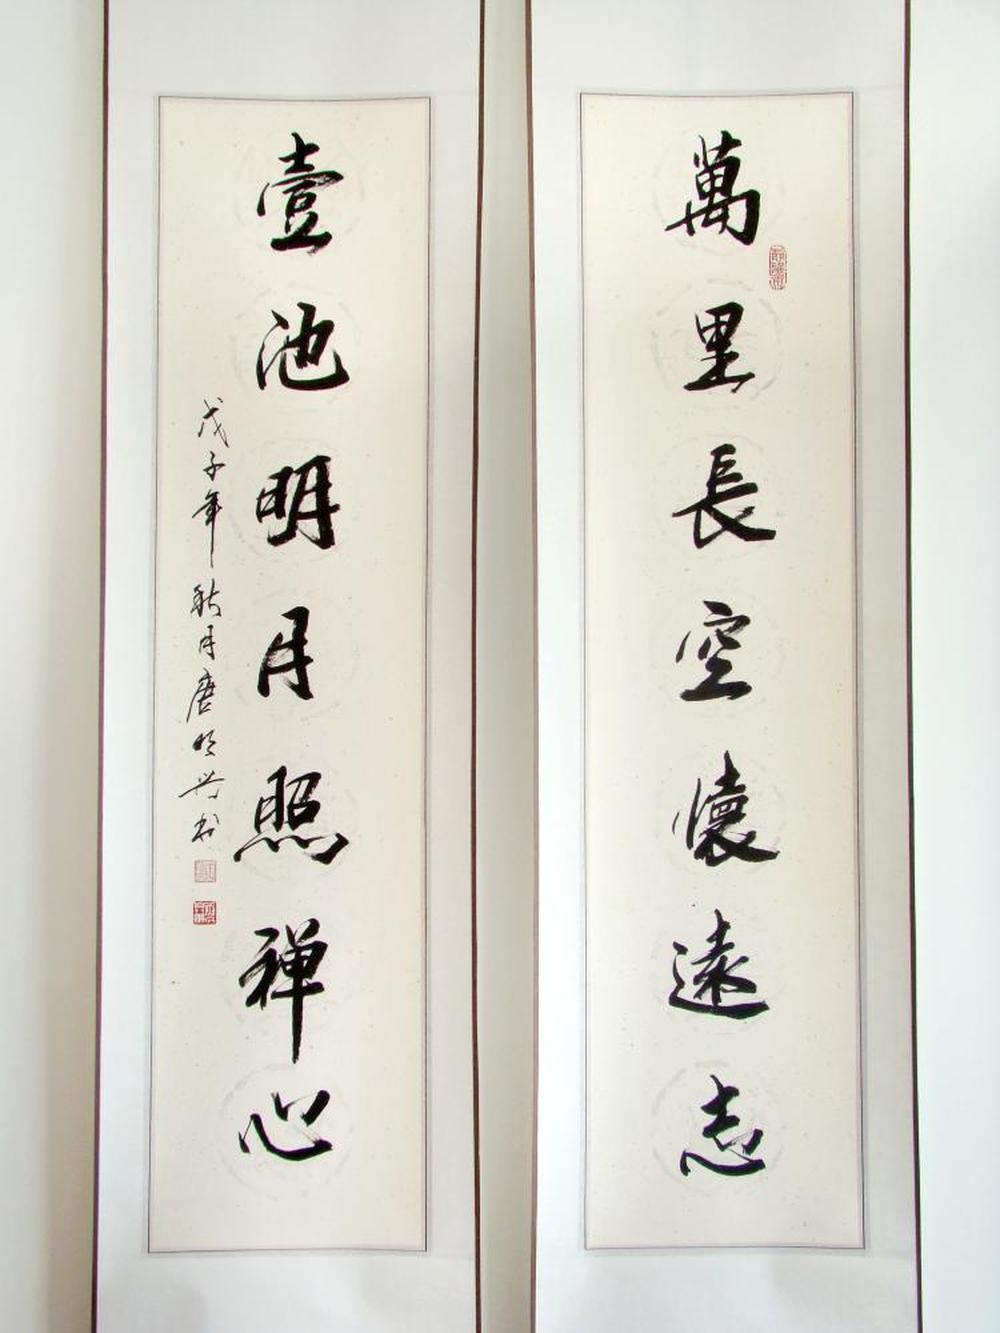 萬里長空懷遠志
壹池明月照禅心
戊子年秋月唐明兴书